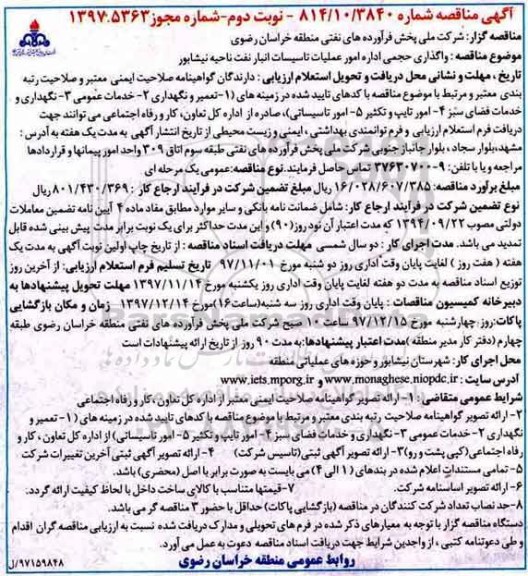 آگهی مناقصه شماره ۸۱۴/۱۰/۳۸۴۰ - نوبت دوم-شماره مجوز ۱۳۹۷.۵۳۶۳
مناقصه گزار: شرکت ملی پخش فرآورده های نفتی منطقه خراسان رضوی
موضوع مناقصه: واگذاری حجمی اداره امور عملیات تاسیسات انبار نفت ناحیه نیشابور
تاریخ ، مهلت و نشانی محل دریافت و تحویل استعلام ارزیابی: دارندگان گواهینامه صلاحیت ایمنی معتبر و صلاحیت رتبه
بندی معتبر و مرتبط با موضوع مناقصه با کدهای تایید شده در زمینه های (۱-تعمیر و نگهداری ۲- خدمات عمومی ۳-نگهداری و
خدمات فضای سبز ۴- امور تایپ و تکثیر ۵- امور تاسیساتی)، صادره از اداره کل تعاون، کار و رفاه اجتماعی می توانند جهت
دریافت فرم استعلام ارزیابی و فرم توانمندی بهداشتی ، ایمنی و زیست محیطی از تاریخ انتشار آگهی به مدت یک هفته به آدرس :
مشهد،بلوار سجاد ، بلوار جانباز جنوبی شرکت ملی پخش فرآورده های نفتی طبقه سوم اتاق ۳۰۹ واحد امور پیمانها و قراردادها
مراجعه ویا با تلفن: ۹-۳۷۶۳۰۷۰۰ تماس حاصل فرمایند. نوع مناقصه:عمومی یک مرحله ای
مبلغ برآورد مناقصه: ۱۶/۰۲۸/۶۰۷/۳۸۵ ریال مبلغ تضمین شرکت در فرآیند ارجاع کار : ۸۰۱/۴۳۰/۳۶۹ ریال
نوع تضمین شرکت در فرآیند ارجاع کار: شامل ضمانت نامه بانکی و سایر موارد مطابق مفاد ماده ۴ آیین نامه تضمین معاملات
دولتی مصوب ۱۳۹۴/۰۹/۲۲ که مدت اعتبار آن نود روز(۹۰) و این مدت حداکثر برای یک نوبت برابر مدت پیش بینی شده قابل
تمدید می باشد. مدت اجرای کار : دو سال شمسی مهلت دریافت اسناد مناقصه : از تاریخ چاپ اولین نوبت آگهی به مدت یک
هفته ( هفت روز ) لغایت پایان وقت اداری روز دو شنبه مورخ ۹۷/۱۱/۰۱ تاریخ تسلیم فرم استعلام ارزیابی: از آخرین روز
توزیع اسناد مناقصه به مدت دو هفته لغایت پایان وقت اداری روز یکشنبه مورخ ۱۳۹۷/۱۱/۱۴ مهلت تحویل پیشنهادها به
دبیرخانه کمیسیون مناقصات : پایان وقت اداری روز سه شنبه(ساعت ۱۶)مورخ ۱۳۹۷/۱۲/۱۴ زمان و مکان بازگشایی
پاکات:روز: چهارشنبه مورخ ۹۷/۱۲/۱۵ ساعت ۱۰ صبح شرکت ملی پخش فرآورده های نفتی منطقه خراسان رضوی طبقه
چهارم (دفتر کار مدیر منطقه )مدت اعتبار پیشنهادها: به مدت ۹۰ روز از تاریخ ارائه پیشنهادات است
محل اجرای کار: شهرستان نیشابور و حوزه های عملیاتی منطقه
آدرس سایت : www.monaghese.niopdc.ir و www.iets.mporg.ir
شرایط عمومی متقاضی: ۱- ارائه تصویر گواهینامه صلاحیت ایمنی معتبر از اداره کل تعاون ، کار و رفاه اجتماعی
۲- ارائه تصویر گواهینامه صلاحیت رتبه بندی معتبر و مرتبط با موضوع مناقصه با کدهای تایید شده در زمینه های (۱- تعمیر و
نگهداری ۲- خدمات عمومی ۳-نگهداری و خدمات فضای سبز ۴- امور تایپ و تکثیر ۵- امور تاسیساتی) از اداره کل تعاون ، کار و
رفاه اجتماعی (کپی پشت و رو)۳- ارائه تصویر آگهی ثبتی (تاسیس شرکت) ۴- ارائه تصویر آگهی ثبتی آخرین تغییرات شرکت
۵- تمامی مستندات اعلام شده در بندهای (۱ الی ۴) می بایست به صورت برابر با اصل (محضری) باشد.
۶- ارائه تصویر اساسنامه شرکت. ۷-قیمتها متناسب با کالای ساخت داخل با لحاظ کیفیت ارائه گردد.
۸-حد نصاب تعداد شرکت کنندگان در مناقصه (بازگشایی پاکات) حداقل با حضور ۳ مناقصه گر می باشد.
دستگاه مناقصه گزار با توجه به معیارهای ذکر شده در فرم های تحویلی و مدارک دریافت شده نسبت به ارزیابی مناقصه گران اقدام
و طی دعوتنامه کتبی ، از واجدین شرایط جهت دریافت اسناد مناقصه دعوت به عمل می آورد.
روابط عمومی منطقه خراسان رضوی
۹۷۱۵۹۸۴۸/ل